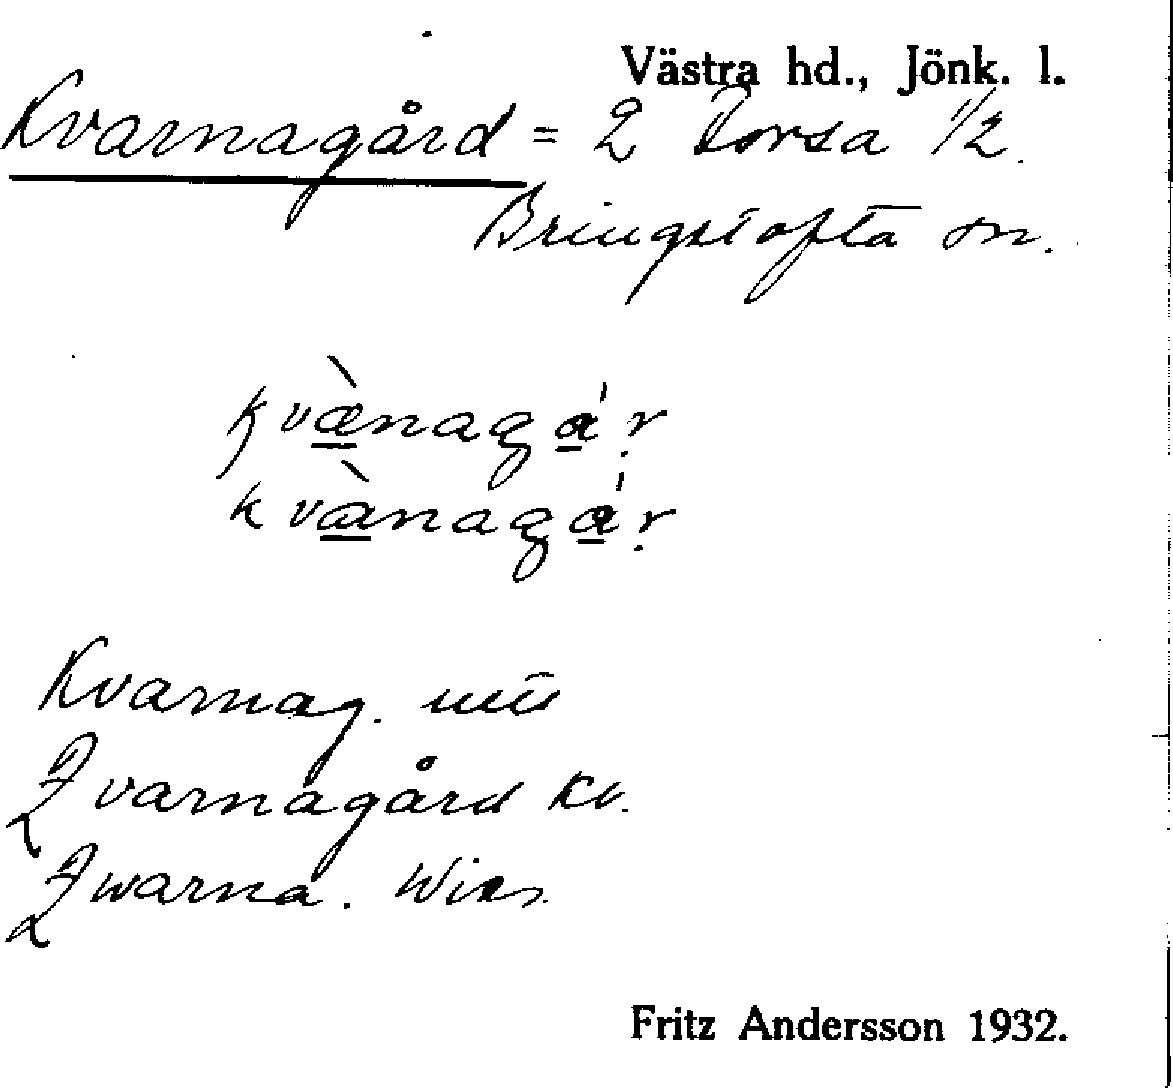 Västra hd., Jönk. l.
Kvarnagård = 2 Torsa 1/2.
Bringetofta sn.
kvæ̀nagá̱ṛ
kvànagá̱ṛ
Kvarnag.
Qvarnagård kv.
Qwarna. Wies.
Fritz Andersson 1932.